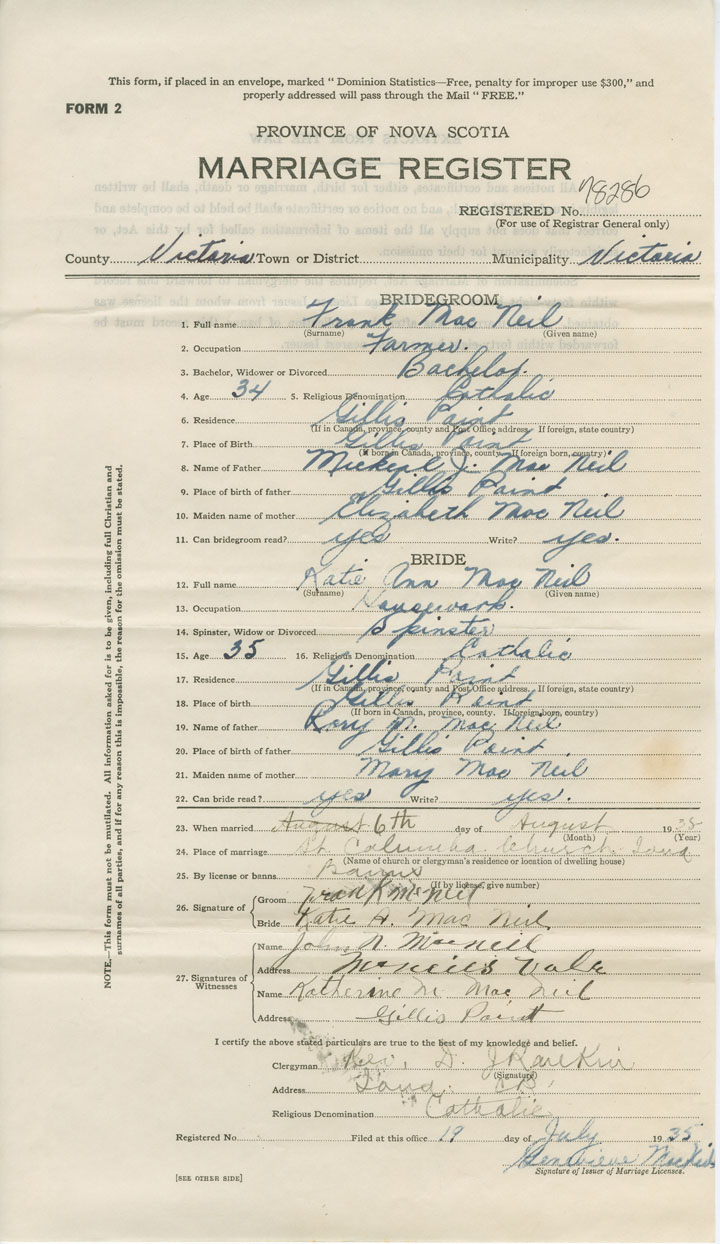 This form, if placed in an envelope, marked “ Dominion Statistics—Free, penalty for improper use $300,” and
properly addressed will pass through the Mail “ FREE.”
FORM 2
PROVINCE OF NOVA SCOTIA
MARRIAGE REGISTER
78286
REGISTERED No.
(For use of Registrar General only)
County Victoria Town or District Municipality Victoria
BRIDEGROOM
1. Full name Frank Mac Neil
(Surname) (Given name)
2. Occupation Farmer.
3. Bachelor, Widower or Divorced Bachelor.
4. Age 34 5. Religious Denomination Catholic
6. Residence Gillis Point
(If in Canada, province, county and Post Office address. If foreign, state country)
7. Place of Birth Gillis Point
(If born in Canada, province, county. If foreign born, country)
8. Name of Father Mickeal J. Mac Neil
9. Place of birth of father Gillis Point
10. Maiden name of mother Elizabeth Mac Neil
11. Can bridegroom read? yes Write? yes.
BRIDE
12. Full name Katie Ann Mac Neil
(Surname) (Given name)
13. Occupation Housework.
14. Spinster, Widow or Divorced Spinster
15. Age 35 16. Religious Denomination Catholic
17. Residence Gillis Point
(If in Canada, province, county and Post Office address. If foreign, state country)
18. Place of birth Gillis Point
(If born in Canada, province, county. If foreign born, country)
19. Name of father Rory Mac Neil
20. Place of birth of father Gillis Point
21. Maiden name of mother Mary Mac Neil
22. Can bride read? yes Write? yes.
23. When married August 6th day of August 1935
(Month) (Year)
24. Place of marriage St Columba Church Iona
(Name of church or clergyman's residence or location of dwelling house)
25. By license or banns Banns
(If by license, give number)
26. Signature of Groom Frank McNeil
Bride Katie A. Mac Neil
27. Signatures of Witnesses Name John Macneil
Address McNeil's Vale
Name Katherine Mac Neil
Address Gillis Point
I certify the above stated particulars are true to the best of my knowledge and belief.
Clergyman Rev. D. J Rankin
(Signature)
Address Iona CB
Religious Denomination Catholic
Registered No. Filed at this office 19 day of July 1935
Genevieve MacNeil
Signature of Issuer of Marriage Licenses.
[SEE OTHER SIDE]
NOTE.—This form must not be mutilated. All information asked for is to be given, including full Christian and
surnames of all parties, and if for any reason this is impossible, the reason for the omission must be stated.